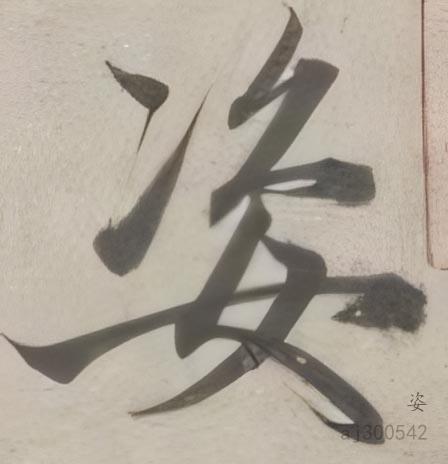 姿
姿
aj300542